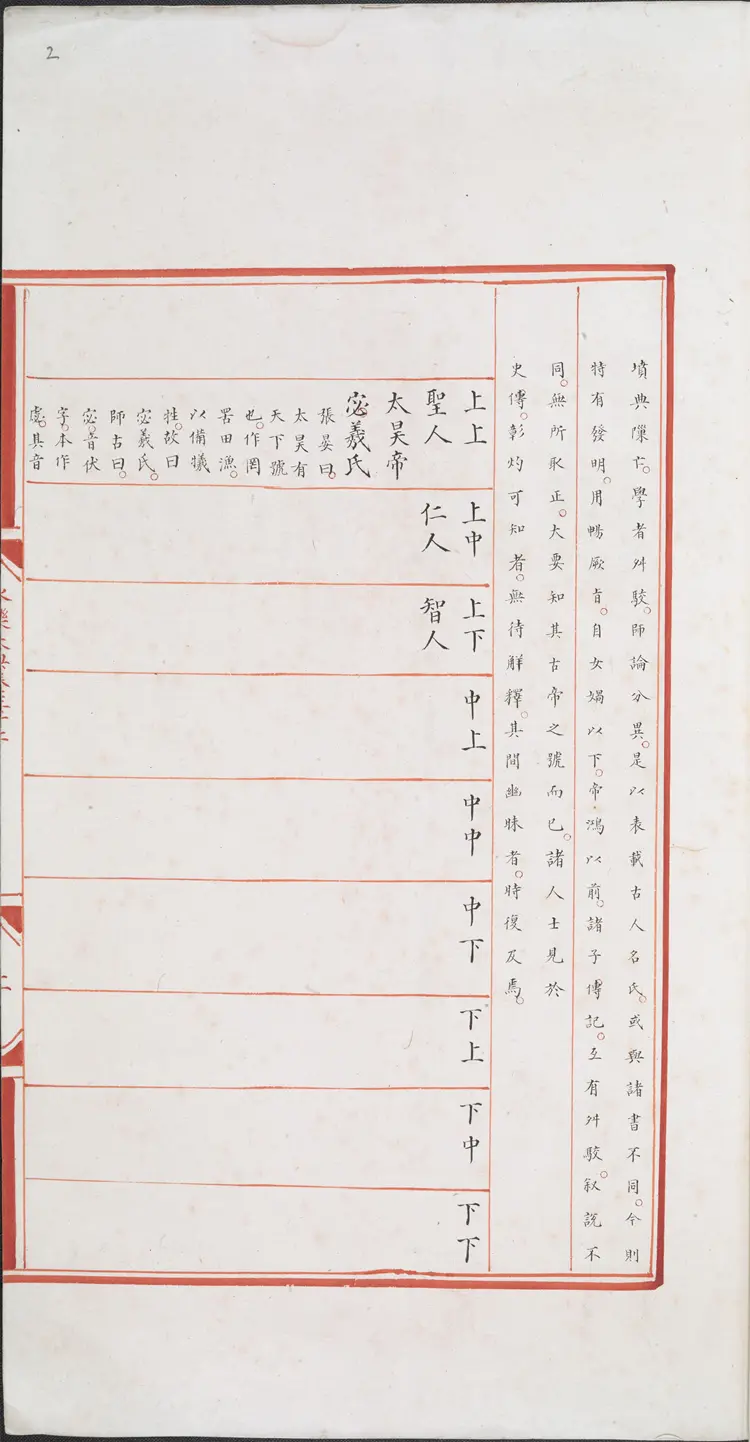 2
墳典隟亡。學者舛駮。師論分異。是以表載古人名氏。或與諸書不同。今則
特有發明。用暢厥旨。自女媧以下。帝鴻以前。諸子傳記。互有舛駮。叙說不
同。無所取正。大要知其古帝之號而已。諸人士見於
史傳。彰灼可知者。無待解釋。其間幽昧者。時復及焉。
上上
聖人
太昊帝
宓羲氏
張晏曰。
太昊有
天下號
也。作罔
罟田漁。
以備犧
牲。故曰
宓羲氏。
師古曰。
宓音伏
字。本作
虙。其音
上中
仁人
上下
智人
中上
中中
中下
下上
下中
下下